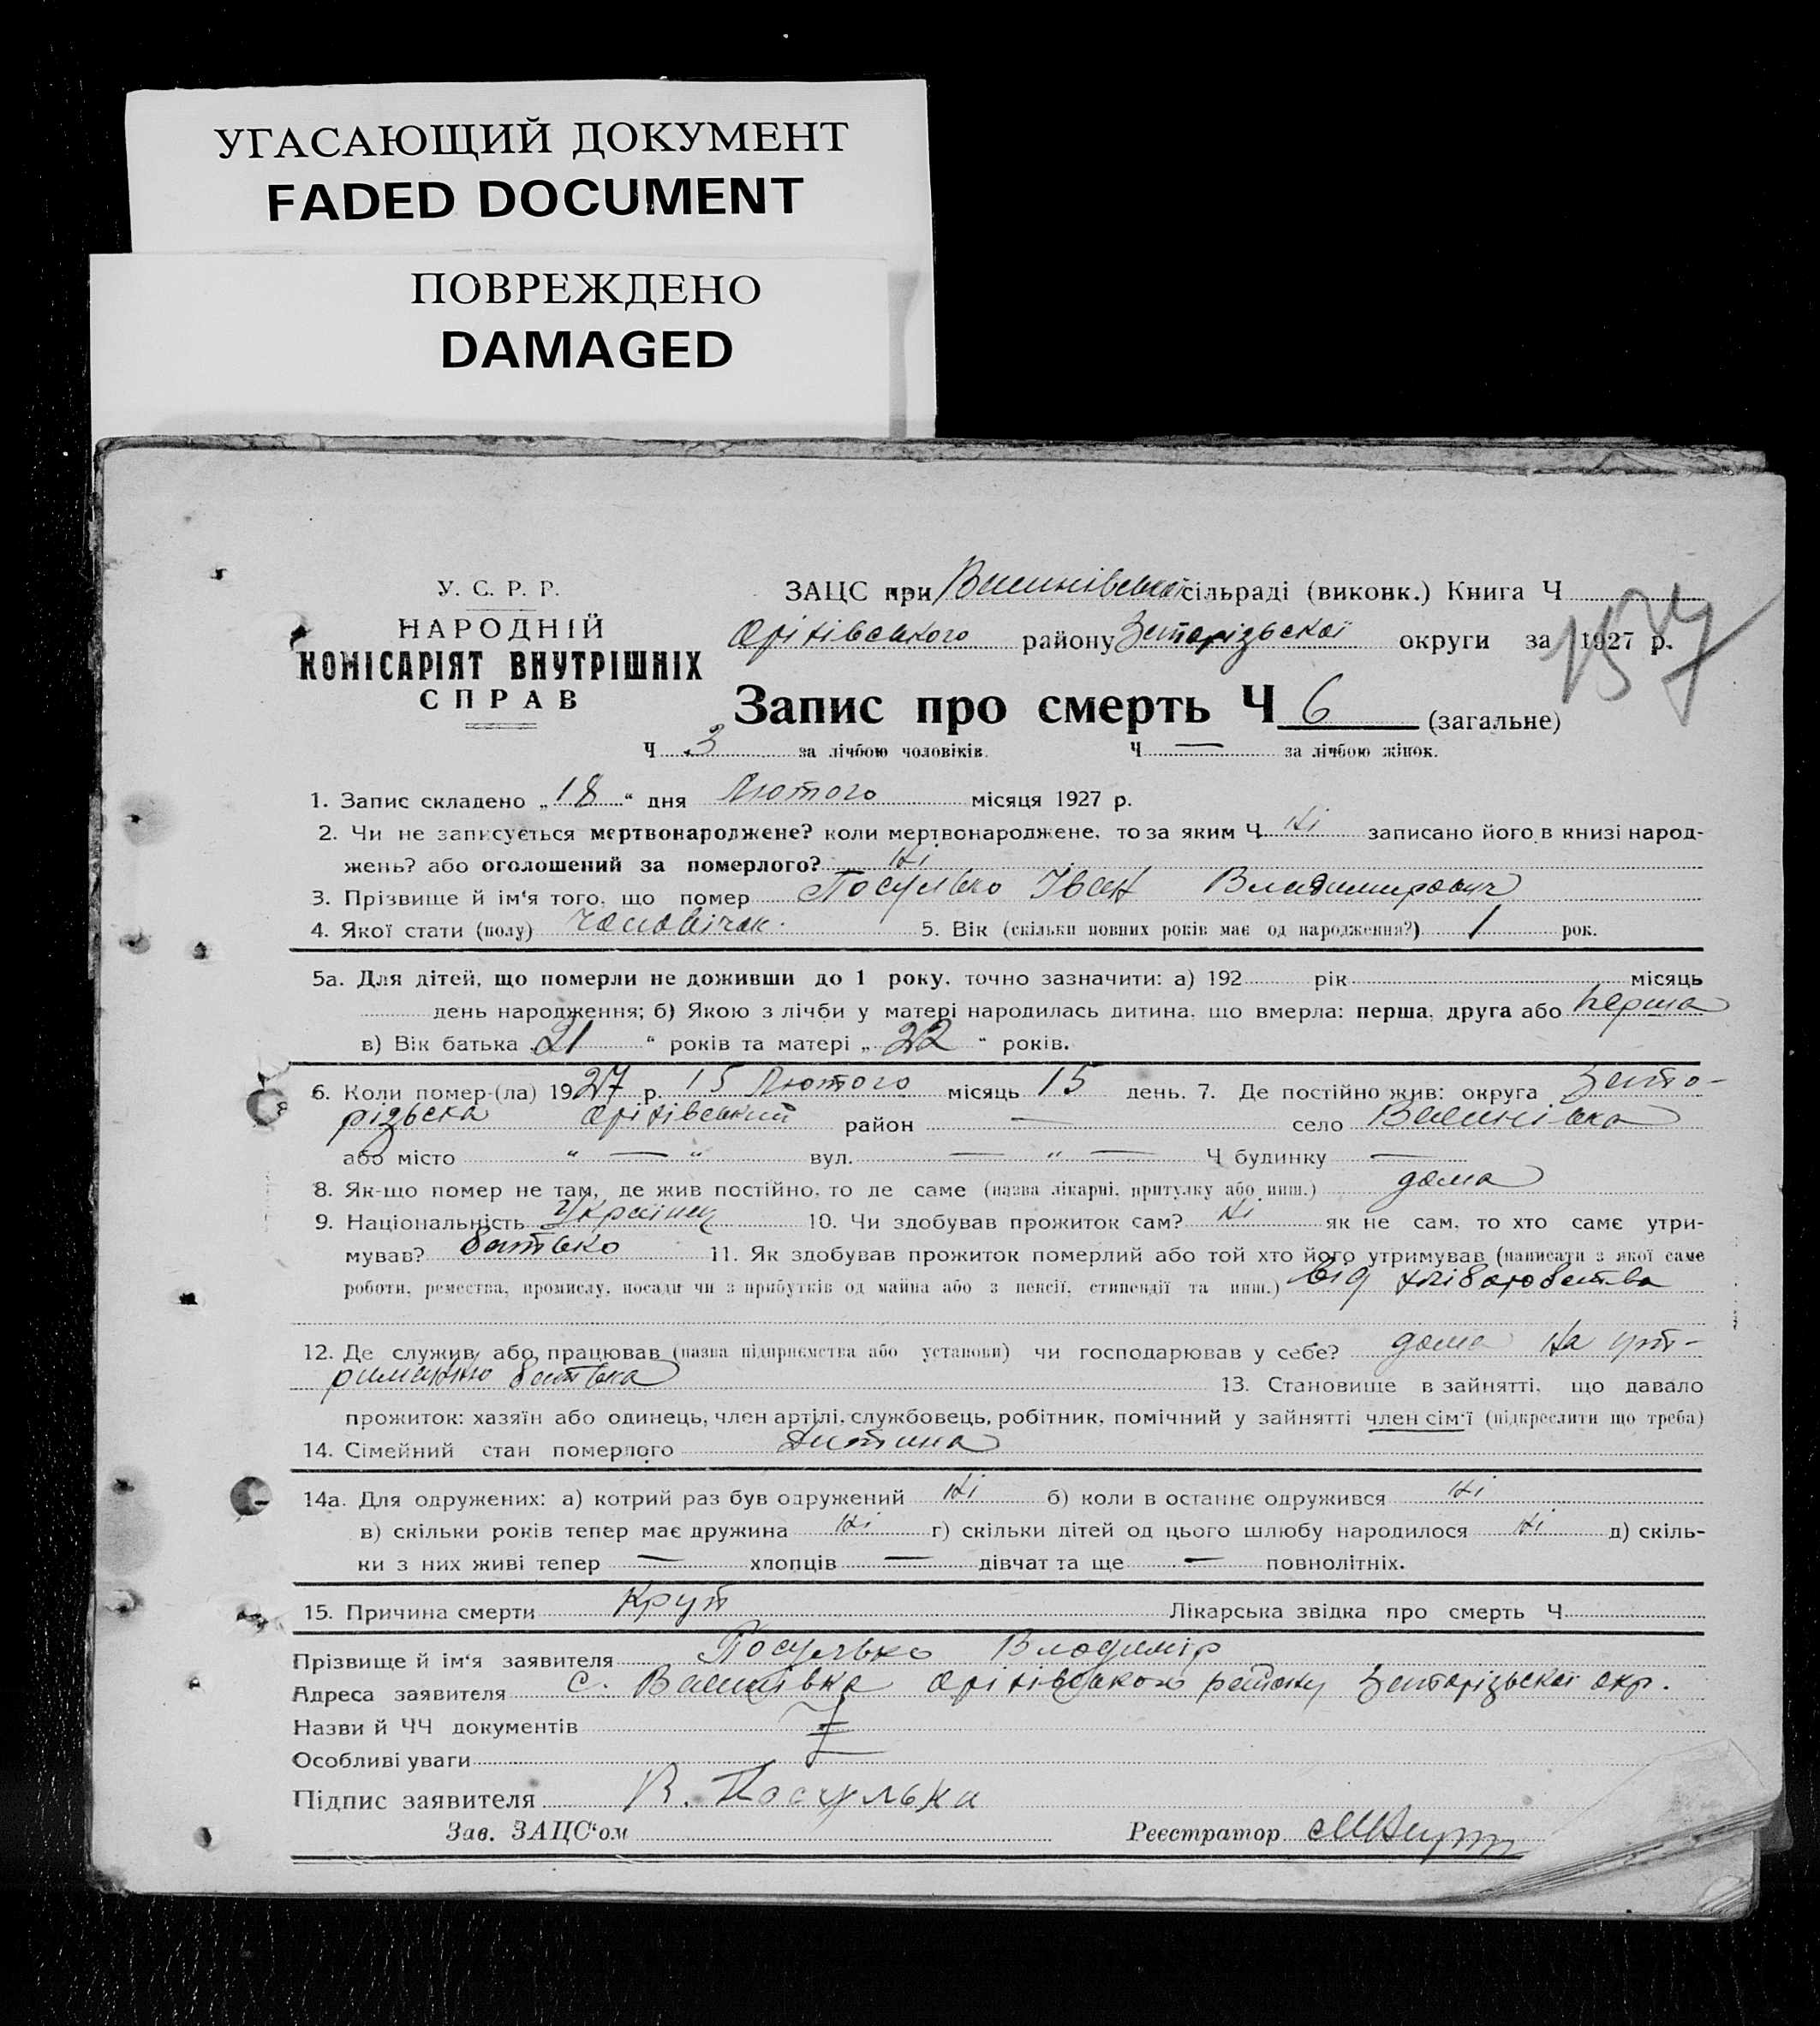 УГАСАЮЩИЙ ДОКУМЕНТ
FADED DOCUMENT
ПОВРЕЖДЕНО
DAMAGED
У. С. Р. Р.
НАРОДНІЙ
КОМІСАРІЯТ ВНУТРІШНІХ
СПРАВ
ЗАЦС при сільраді (виконк.) Книга Ч
Оріхівського району Запорізької округи за 1927 р.
157
Запис про смерть Ч 6 (загальне)
Ч 3 за лічбою чоловіків. Ч — за лічбою жінок.
1. Запис складено „18“ дня Лютого місяця 1927 р.
2. Чи не записується мертвонароджене? коли мертвонароджене, то за яким Ч Ні записано його в книзі народ-
жень? або оголошений за померлого? Ні
3. Прізвище й ім‘я того, що помер Посулько Іван Владимирович
4. Якої стати (полу) чоловічої 5. Вік (скільки повних років має од народження?) 1 рок.
5а. Для дітей, що померли не доживши до 1 року, точно зазначити: а) 192 рік місяць
день народження; б) Якою з лічби у матері народилась дитина, що вмерла: перша, друга або перша
в) Вік батька „21“ років та матері „22“ років.
6. Коли помер-(ла) 1927 р. 15 Лютого місяць 15 день. 7. Де постійно жив: округа Запо-
різьска Оріхівський район — село
або місто “ — “ вул. — “ — Ч будинку —
8. Як-що помер не там, де жив постійно, то де саме (назва лікарні, притулку або инш.) дома
9. Національність Українец 10. Чи здобував прожиток сам? Ні як не сам, то хто саме утри-
мував? батько 11. Як здобував прожиток померлий або той хто його утримував (написати з якої саме
роботи, ремества, промислу, посади чи з прибутків од майна або з пенсії, стипендії та инш.) від хліборобства
12. Де служив, або працював (назва підприємства або установи) чи господарював у себе? дома на ут-
риманню батька 13. Становище в зайнятті, що давало
прожиток: хазяїн або одинець, член артілі, службовець, робітник, помічний у зайнятті член сім‘ї (підкреслити що треба)
14. Сімейний стан померлого дитина
14а. Для одружених: а) котрий раз був одружений Ні б) коли в останнє одружився Ні
в) скільки років тепер має дружина Ні г) скільки дітей од цього шлюбу народилося Ні д) скіль-
ки з них живі тепер — хлопців — дівчат та ще — повнолітніх.
15. Причина смерти Круп Лікарська звідка про смерть Ч
Прізвище й ім‘я заявителя Посулько Владимір
Адреса заявителя с. Оріхівського району Запорізьскої окр.
Назви й ЧЧ документів
Особливі уваги
Підпис заявителя В. Посулька
Зав. ЗАЦС‘ом Реєстратор